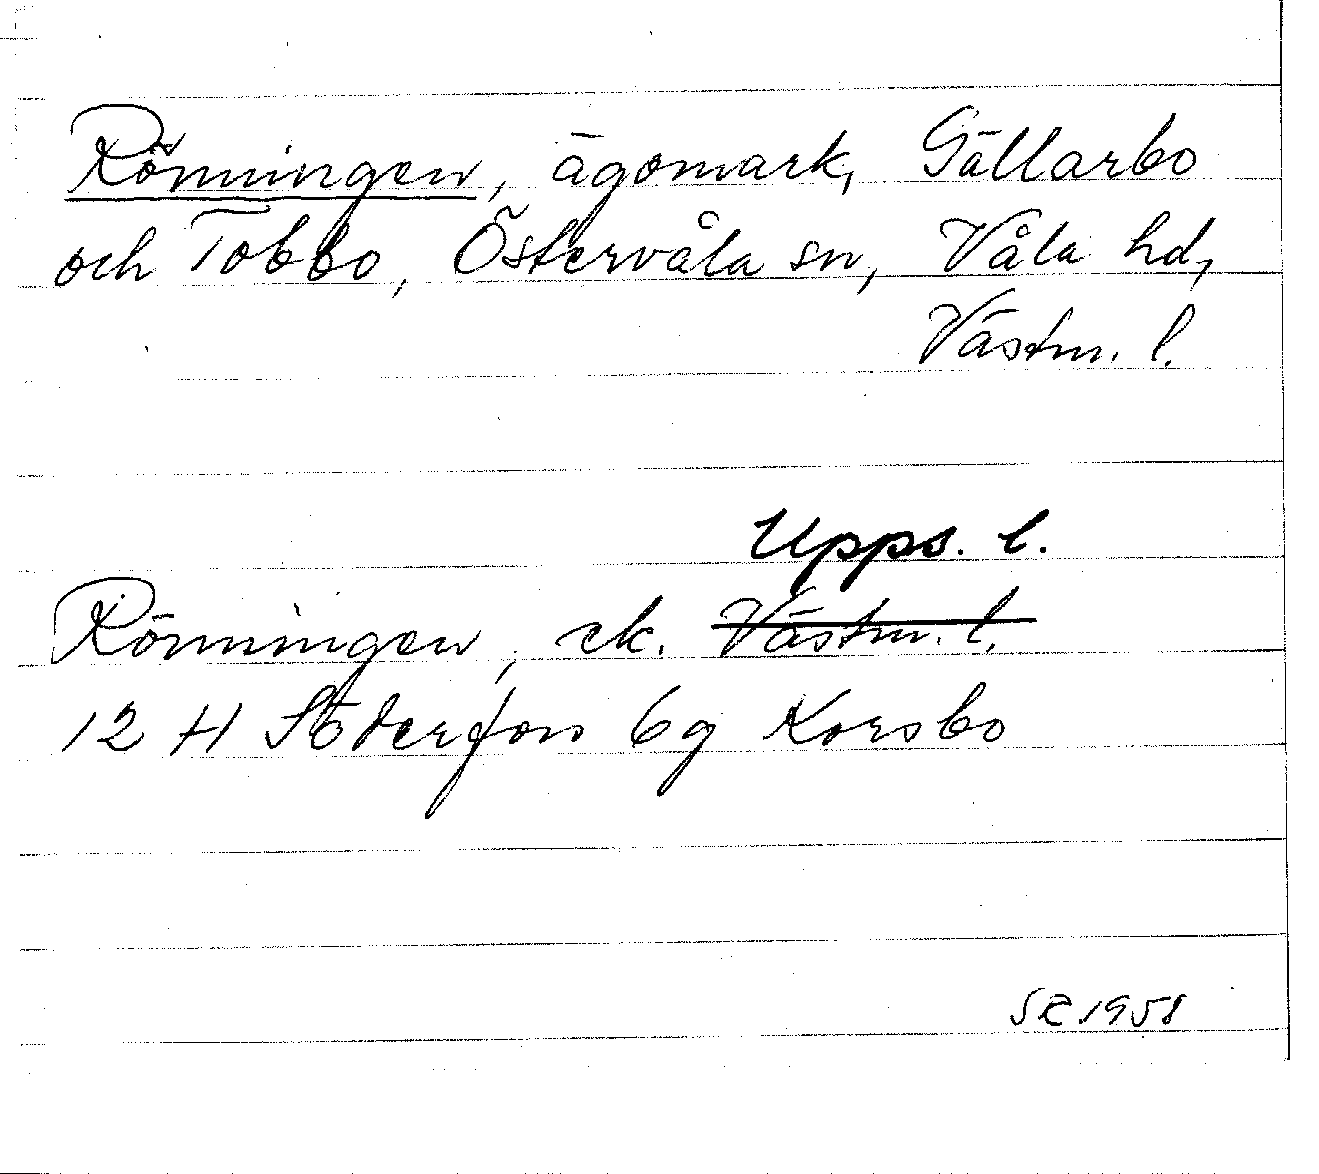 Rönningen, ägomark, Gällarbo
och Tobbo, Östervåla sn, Våla hd,
Västm. l.
Upps. l.
Rönningen, ek. Västm. l.
12 H Söderfors 6g Korsbo
SE 1958